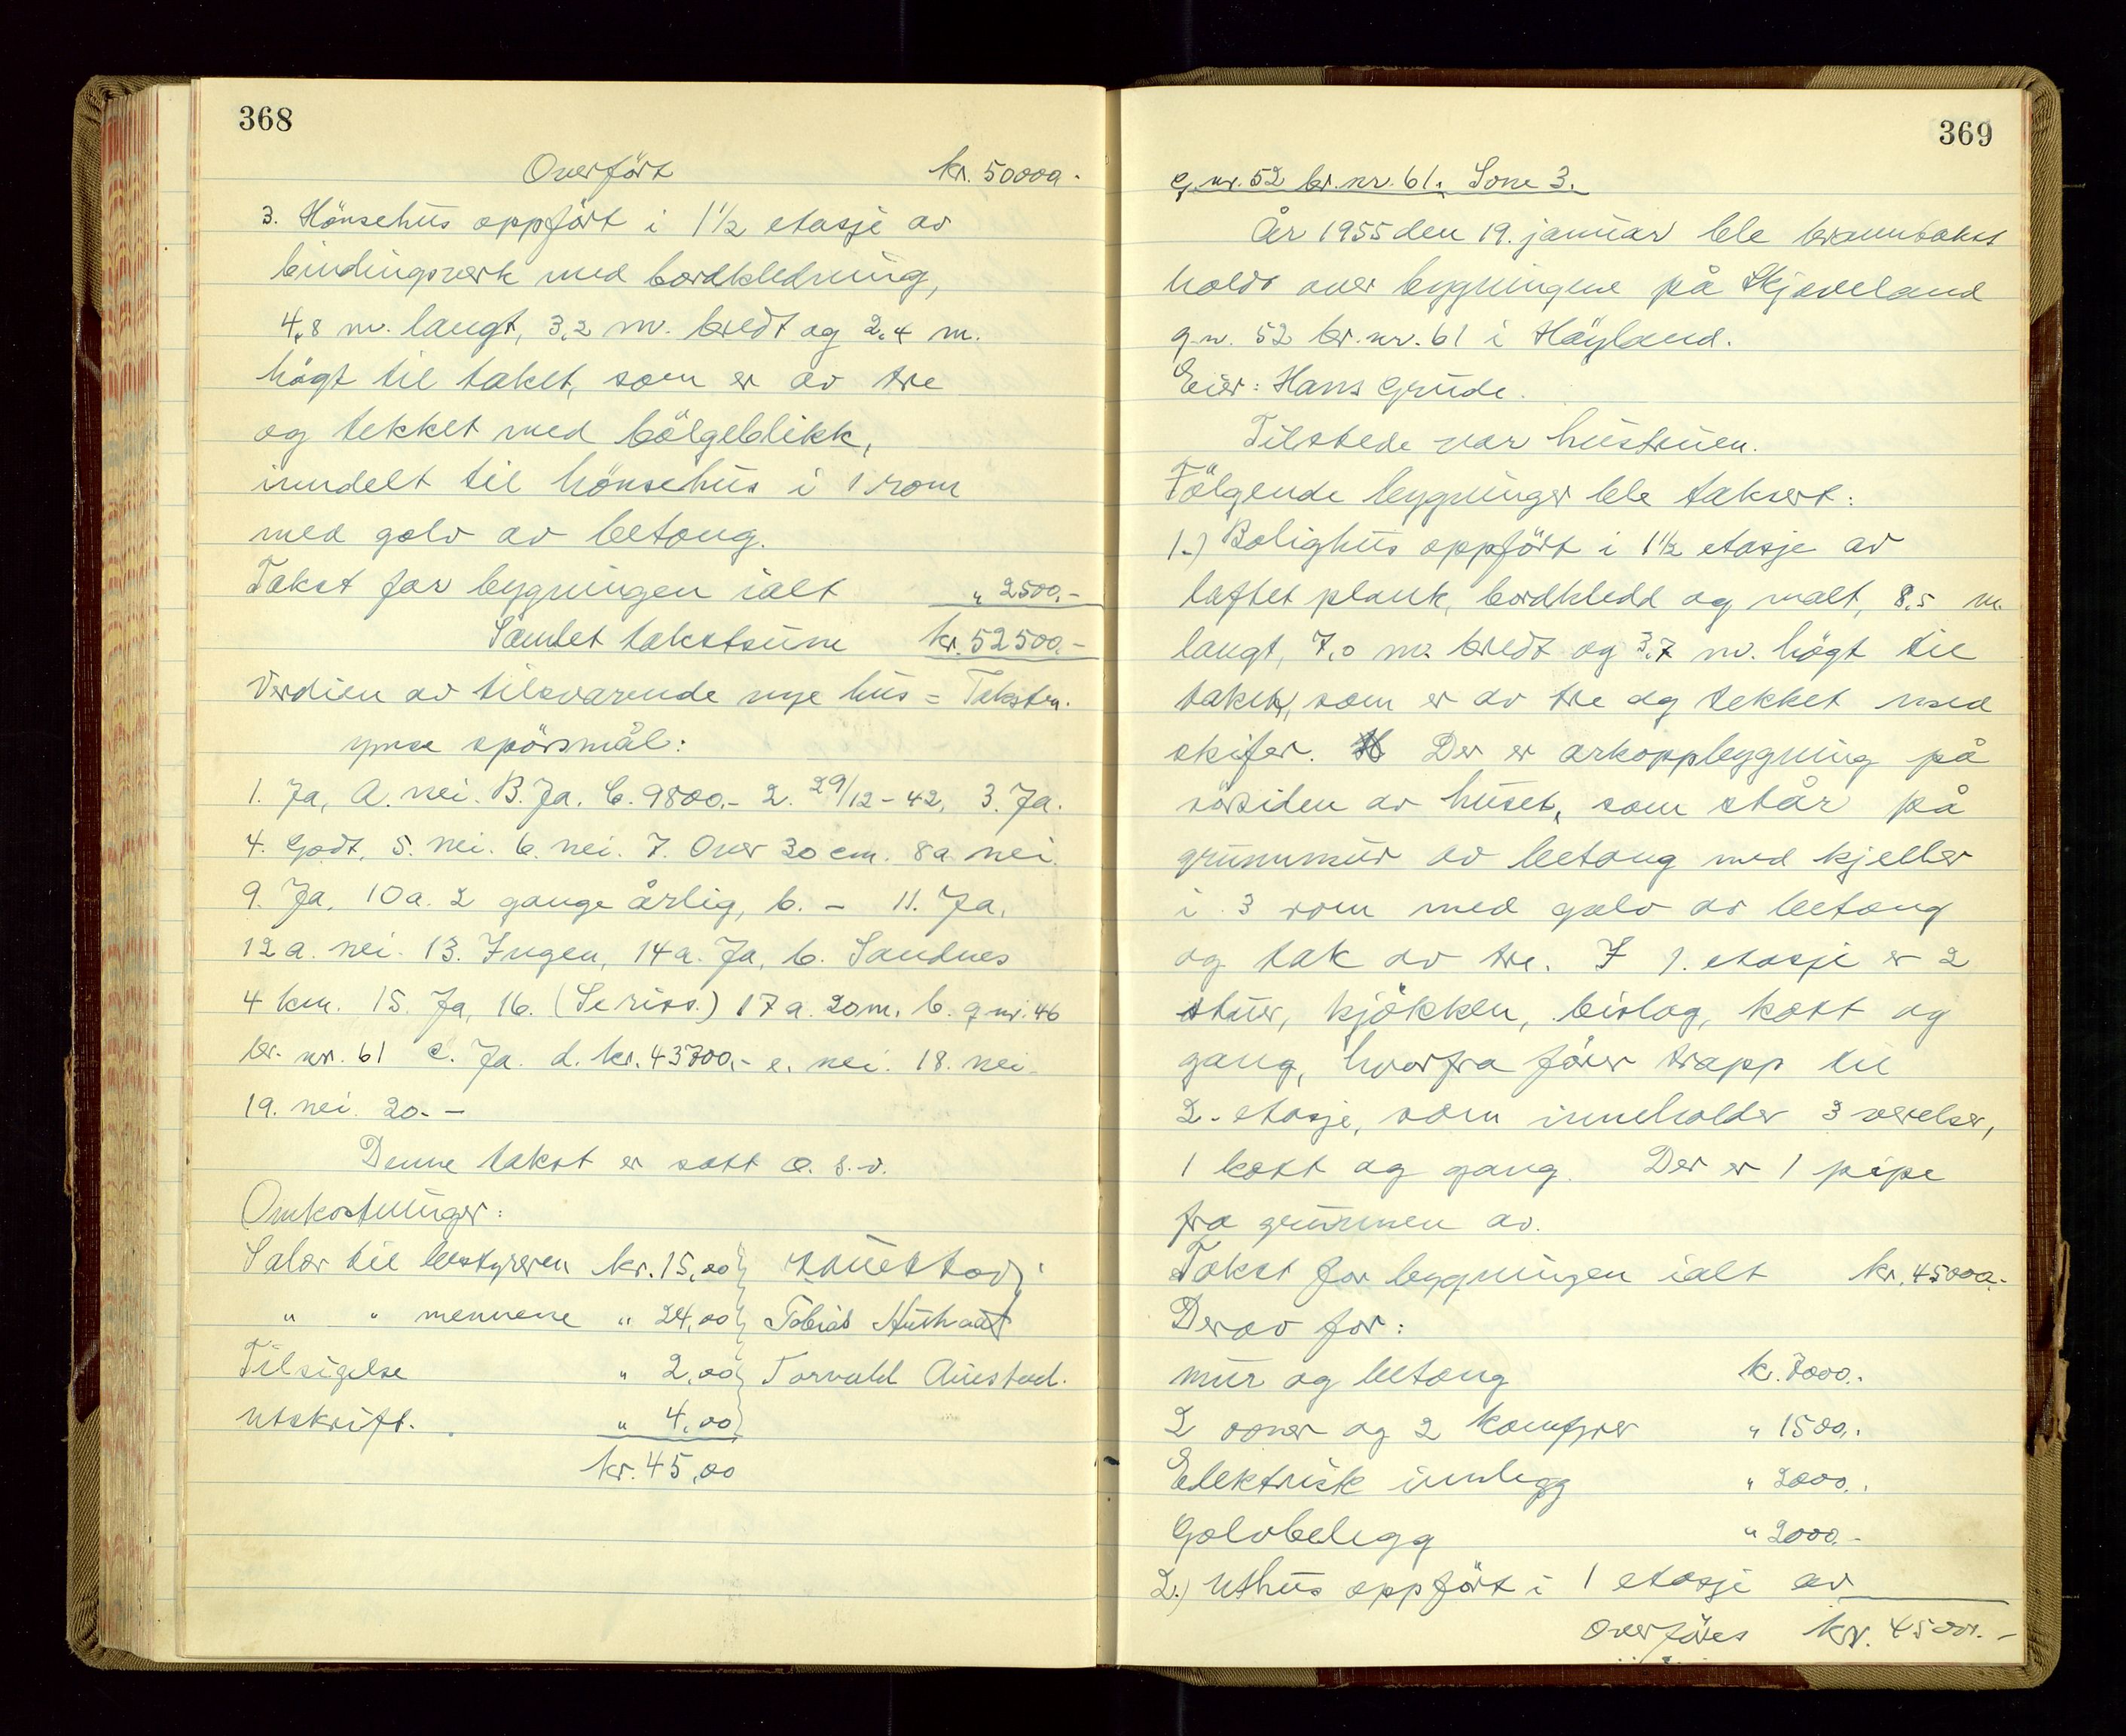 368
Overfört kr. 50000.-
3. Hönsehus oppfört i 1½ etasje av
bindingsverk med bordkledning,
4,8 m. langt, 3,2 m. bredt og 2,4 m.
högt til taket, som er av tre
og tekket med bölgeblikk,
inndelt til hönsehus i 1 rom
med golv av betong.
Takst for bygningen ialt " 2500.-
Samlet takstsum kr. 52500.-
Verdien av tilsvarende nye hus = Taksten.
ymse spörsmål:
1. Ja, A. nei. B. Ja. C. 9800.- 2. 29/12-42, 3. Ja.
4. Godt, 5. nei. 6. nei. 7. Over 30 cm. 8a. nei.
9. Ja, 10a. 2 gange årlig, b. - 11. Ja,
12a. nei. 13. Ingen, 14a. Ja, b. Sandnes
4 km. 15. Ja, 16. (Se riss.) 17a. 20m. b. g.nr. 46
br. nr. 61 c. Ja. d. kr. 43700.- e. nei. 18. nei.
19. nei. 20. -
Denne takst er satt o. s. v.
Omkostninger:
Salær til bestyreren kr. 15,00
" " mennene " 24,00 Tobias
Tilsigelse " 2,00 Torvald Auestad.
Utskrift. " 4,00
kr. 45,00
369
g.nr. 52 br.nr. 61. Sone 3.
År 1955 den 19. januar ble branntakst
holdt over bygningene på Skjæveland
g.n. 52 br.nr. 61 i Höyland.
Eier: Hans Grude.
Tilstede var hustruen.
Fölgende bygninger ble taksert:
1.) Bolighus oppfört i 1½ etasje av
laftet plank, bordkledd og malt, 8,5 m.
langt, 7,0 m. bredt og 3,7 m. högt til
taket, som er av tre og tekket med
skifer. Der er arkoppbygning på
sörsiden av huset, som står på
grunnmur av betong med kjeller
i 3 rom med golv av betong
og tak av tre. I 1. etasje er 2
stuer, kjökken, bislag, kott og
gang, hvorfra förer trapp til
2. etasje, som inneholder 3 værelser,
1 kott og gang. Der er 1 pipe
fra grunnen av.
Takst for bygningen ialt kr. 45000.-
Derav for:
mur og betong k. 7000.-
2 ovner og 2 komfyrer " 1500.-
Elektrisk innlegg " 2000.-
Golvbelegg " 2000.-
2.) Uthus oppfört i 1 etasje av
Overföres kr. 45000.-